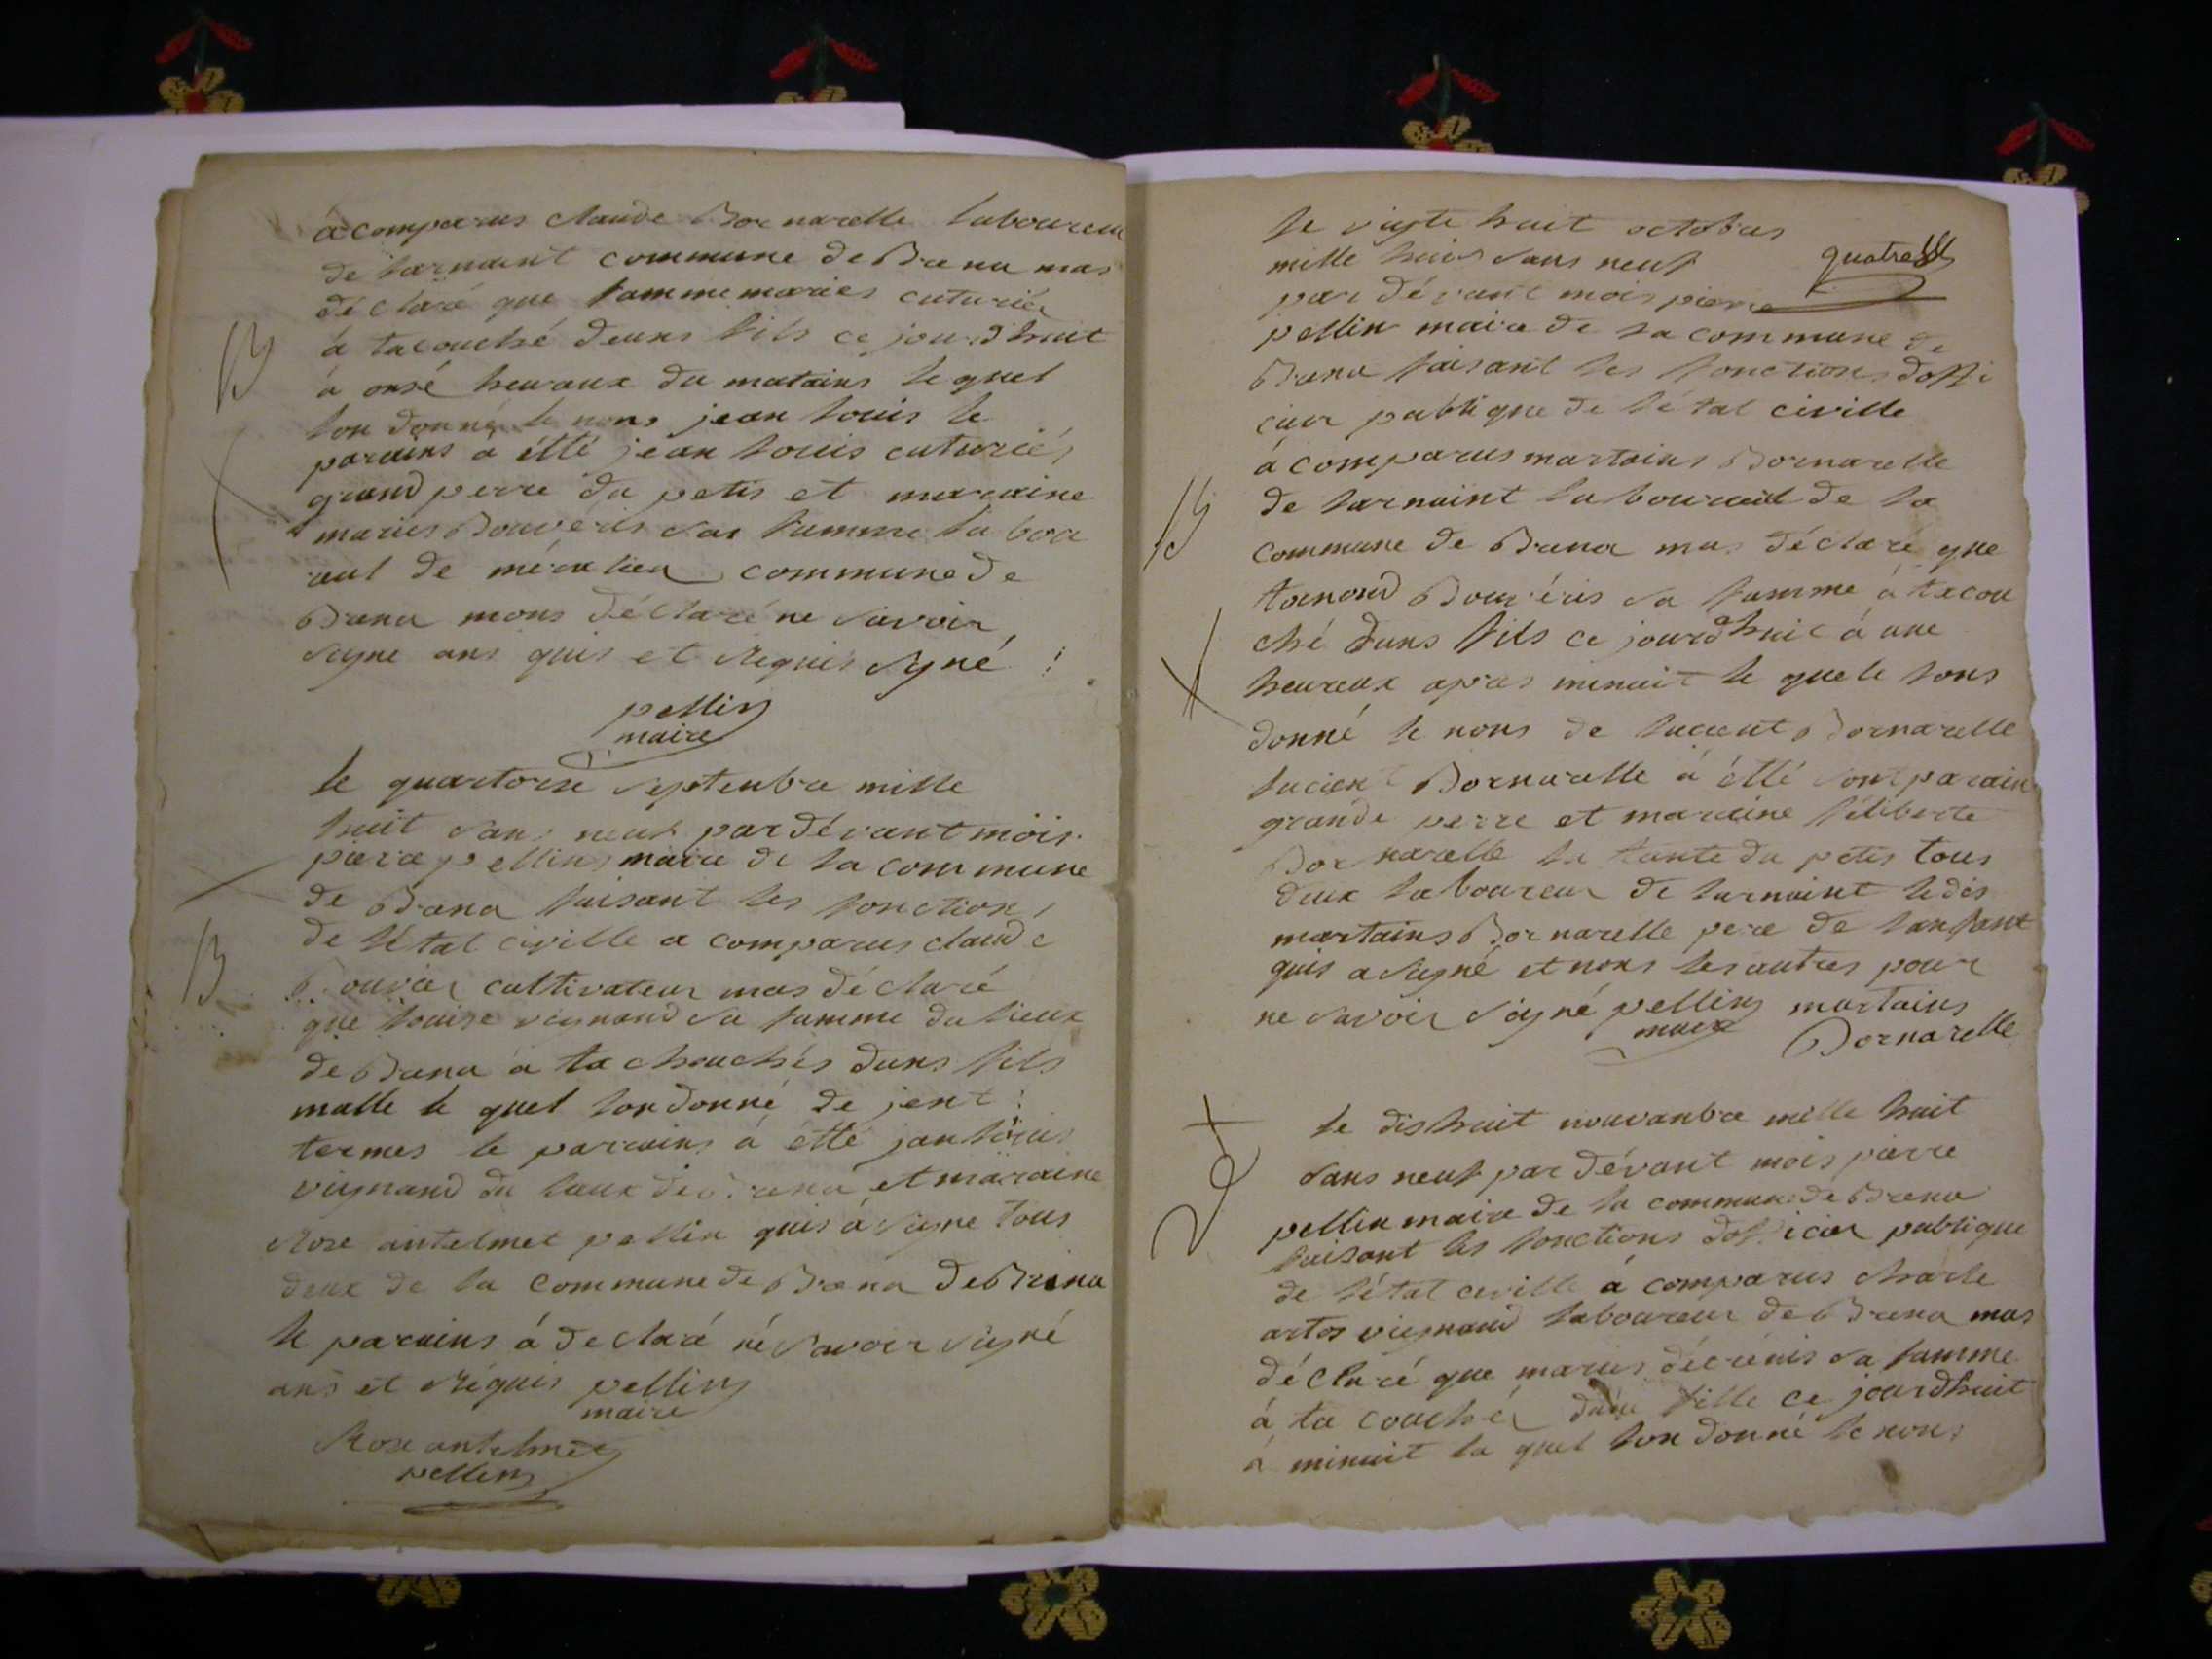 à comparus claude Bornarelle laboureur
de larnaint commune de Brena mas
déclaré que famme maries cuturiér
à tacouché deuns fils ce jourdhuit
à onsé heuraux du matains le quel
lon donné le nons jean louis le
parains a étté jean louis cuturiér
grand perre du petis et maraine
maries Bouveris sas famme la bou
raul de commune de
Brena mons déclaré ne savoir
signe ans quis et requis signé
pellin
maire
le quartorse septenbre mille
huit sans neuf par dévant mois
piere pellins maire de la commune
de Brena faisant les fonctions
de létal civille a comparus claude
Bouvier cultivateur mas déclaré
que louise vignand sa famme du lieux
de Brena à ta chouchés duns fils
malle le quel lon donné de jent
termes le parains à étté jan louis
vignand du laux de Brena et maraine
Rose antelmet pellin quis à signe tous
deux de la commune de Brena de Brena
le parains à déclaré né savoir signé
ans et réquis pellin
maire
Rose antelmet
pellin
le vingte huit octobres
mille huis sans neuf quatre
par dévant mois pierre
pellin maire de la commune de
Brena faisant les fonctions doffi
cier publique de létal civille
à comparus martains Bornarelle
de larnaint laboureul de la
commune de Brena mas déclaré que
Bouvéris sa famme à tacou
ché duns fils ce jourdhuit à une
heureux apras minuit le quele lons
donné le nons de lucient Bornarelle
lucient Bornarelle à étté sont parain
grande perre et maraine féliberte
Bornarelle la tante du petis tous
deux laboureur de larnaint ledis
martains Bornarelle pere de lanfant
quis a signé et nons les autres pour
ne savoir signé pellin martains
maire Bornarelle
le dishuit nouvanbre mille huit
sans neuf par dévant mois pierre
pellin maire de la commune de Brena
faisant les fonctions dofficier publique
de létal ceville à comparus charle
artos vignand laboureur de Brena mas
déclaré que maries décrénis sa famme
à ta couchér dune fille ce jourdhuit
à minuit la quel lon donné le nons